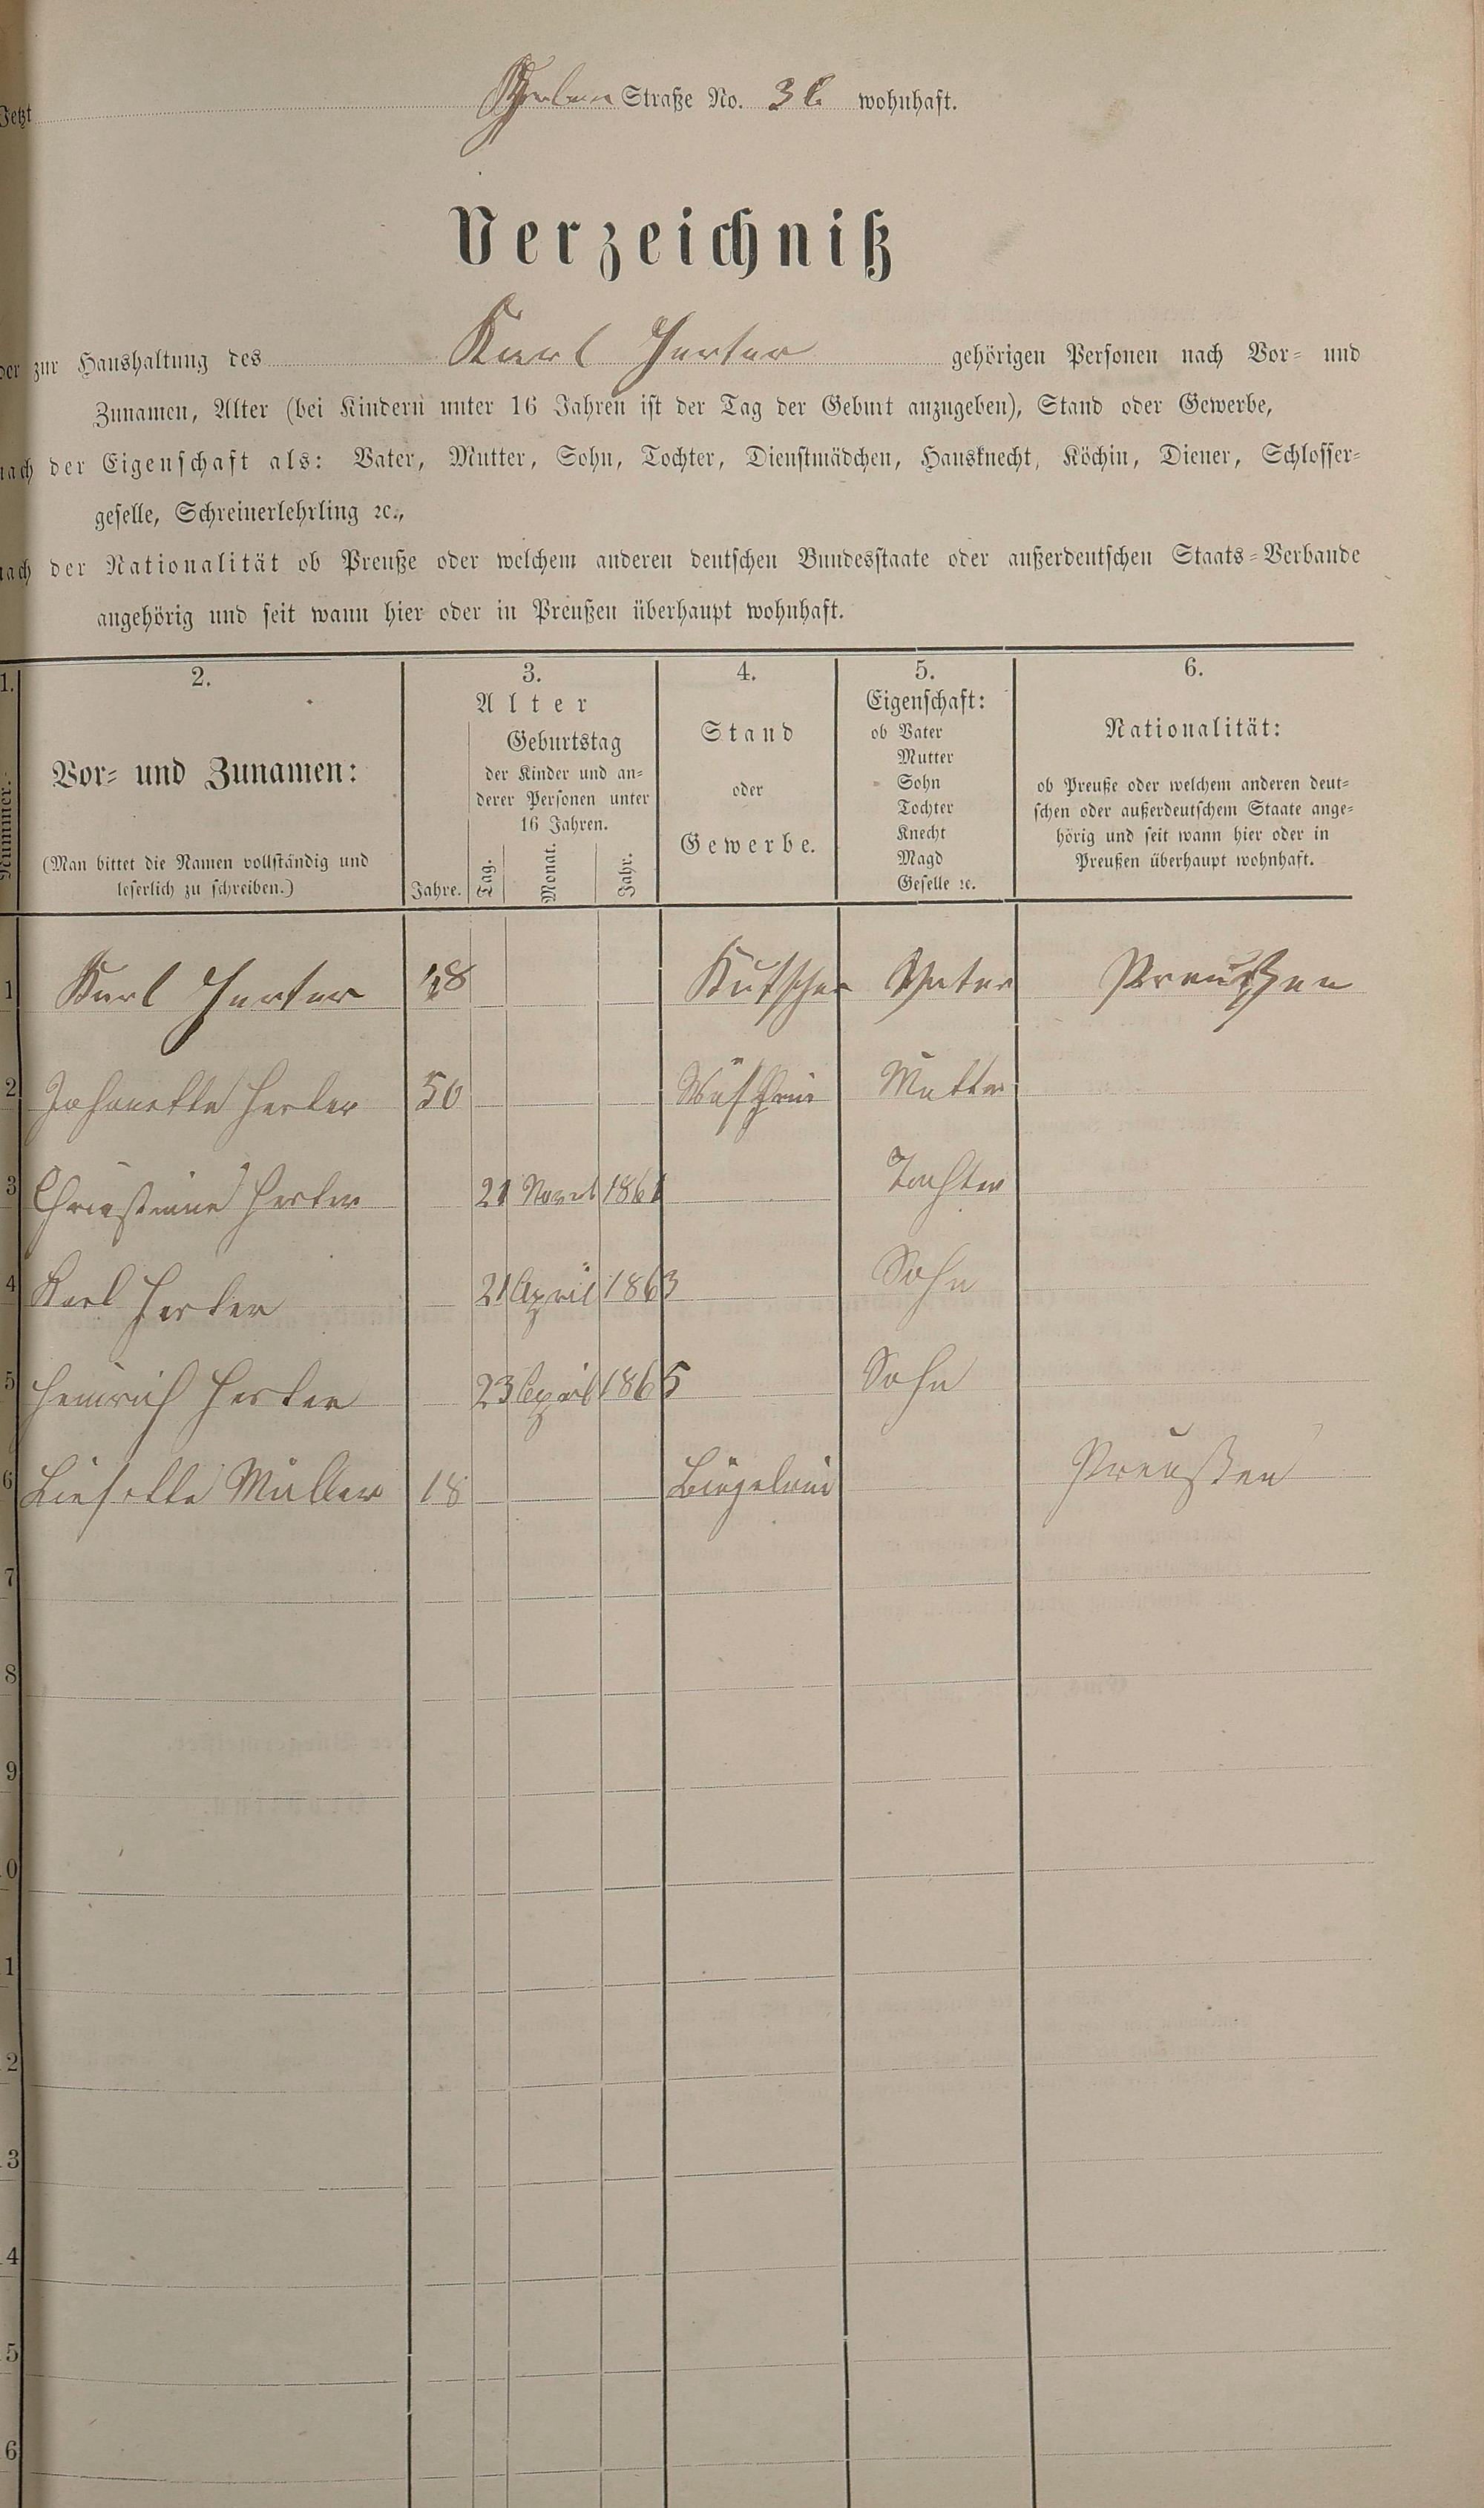 Jetzt Straße No. wohnhaft.
Verzeichniß
der zur Haushaltung des Karl Herter gehörigen Personen nach Vor- und
Zunamen, Alter (bei Kindern unter 16 Jahren ist der Tag der Geburt anzugeben), Stand oder Gewerbe,
nach der Eigenschaft als: Vater, Mutter, Sohn, Tochter, Dienstmädchen, Hausknecht, Köchin, Diener, Schlosser-
geselle, Schreinerlehrling ꝛc.,
nach der Nationalität ob Preuße oder welchem anderen deutschen Bundesstaate oder außerdeutschen Staats-Verbande
angehörig und seit wann hier oder in Preußen überhaupt wohnhaft.
1.
Nummer.
2.
Vor- und Zunamen:
(Man bittet die Namen vollständig und
leserlich zu schreiben.)
3.
Alter
Jahre.
Geburtstag
der Kinder und an-
derer Personen unter
16 Jahren.
Tag.
Monat.
Jahr.
4.
Stand
oder
Gewerbe.
5.
Eigenschaft:
ob Vater
Mutter
Sohn
Tochter
Knecht
Magd
Geselle ꝛc.
6.
Nationalität:
ob Preuße oder welchem anderen deut-
schen oder außerdeutschem Staate ange-
hörig und seit wann hier oder in
Preußen überhaupt wohnhaft.
1 Karl Herter 48 Kutscher Vater Preußen
2 Johanette Herter 50 Mutter
3 Christine Herter 21 1861 Tochter
4 Karl Herter 21 April 1863 Sohn
5 Heinrich Herter 23 April 1865 Sohn
6 Liesette Müller 18 Büglerin Preußen
7
8
9
0
1
2
3
4
5
6